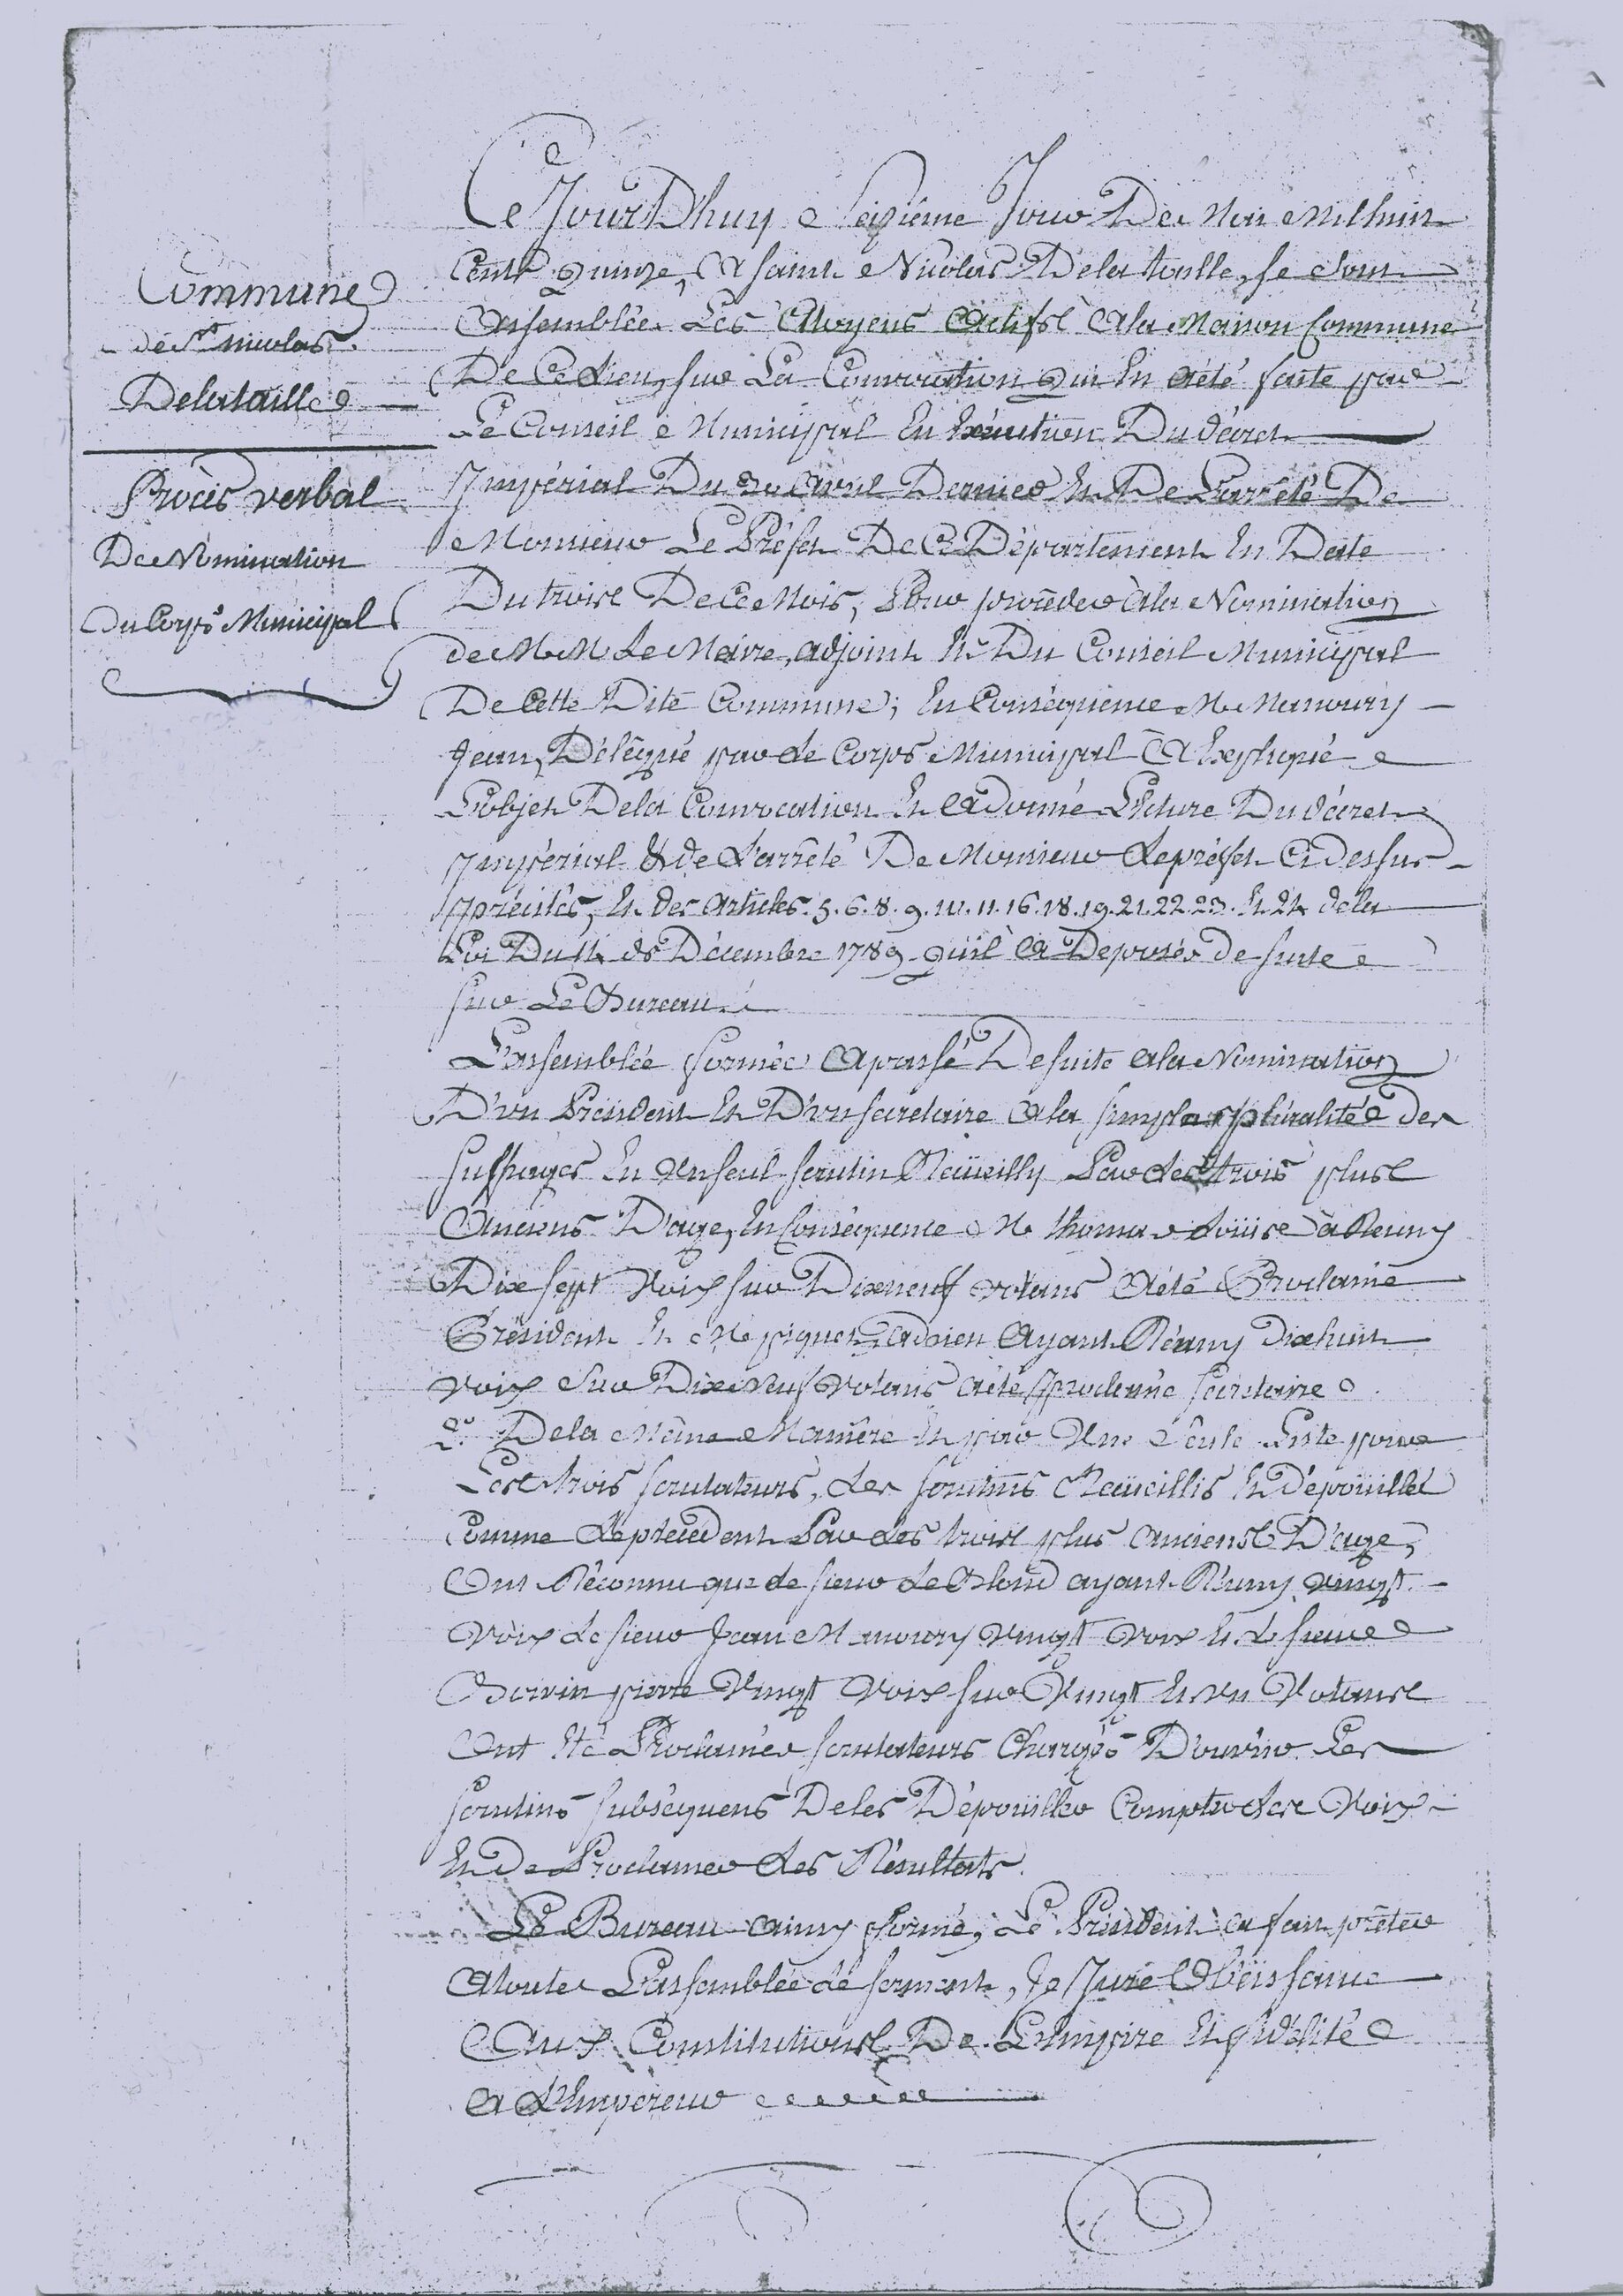 Commune
de St nicolas
Delataille
Procès verbal
De Nomination
Du Corps Municipal
Ce Jourd'huy Seizième Jour De Mai Mil huit
Cent quinze, A saint Nicolas Delataille, se sont
Assemblée Les Citoyens Actifs Ala Maison Commune
De Ce Lieu, sur La Convocation qui En aété faite par
Le Conseil Municipal En Exécution Du décret
Impérial Du 30 avril Dernier Et De L'arrêté De
Monsieur Le Préfet De Ce Département En Date
Du trois De Ce Mois, Pour procéder à la Nomination
de M. M. Le Maire, adjoint Et Du Conseil Municipal
De Cette Dite Commune; En Conséquence M. Mamoury
Jean, Délégué par Le Corps Municipal A Expliqué
L'objet De la Convocation Et A donné Lecture Du décret
Impérial & de L'arrêté De Monsieur Le préfet Ci dessus
précités, Et des Articles 5. 6. 8. 9. 10. 11. 16. 18. 19. 21. 22. 23. Et 24 dela
Loi Du 14 de Décembre 1789 quil A Deposés de suite
sur Le Bureau
L'assemblée formée A passé De suite ala Nomination
D'un Président Et D'un secretaire Ala simple pluralité des
suffrages En Un seul scrutin Recüeilly Par Les trois plus
Anciens D'age, En Conséquence M. thoma Loüise à Reuny
Dix sept Voix sur Dixneuf votans Aété Proclamé
Président Et M. piquet adrien Ayant Réuny Dixhuit
Voix Sur Dix Neuf Votans aété proclamé secretaire
2° De la Même Manière Et par Une Seule Liste pour
Les trois scrutateurs, Les scrutins Recüeillis Et Dépoüillé
Comme Le précédent Par Les trois plus anciens D'age,
Ont Réconnu que Le sieur Le Blond ayant Réuny vingt
Voix Le sieur Jean Mamoury vingt Voix Et Le sieur
pierre Vingt Voix sur Vingt Et un Votans
Ont Eté Proclamés scrutateurs Chargés D'ouvrir Les
scrutins subséquens De les Dépoüiller Compter Les Voix
Et De Proclamer Les Résultats.
Le Bureau ainsy formé, Le Président a fait prêter
A toute L'assemblée Le serment, Je Jure Obéissance
Aux Constitutions De L'Empire Et fidélité
A L'Empereur